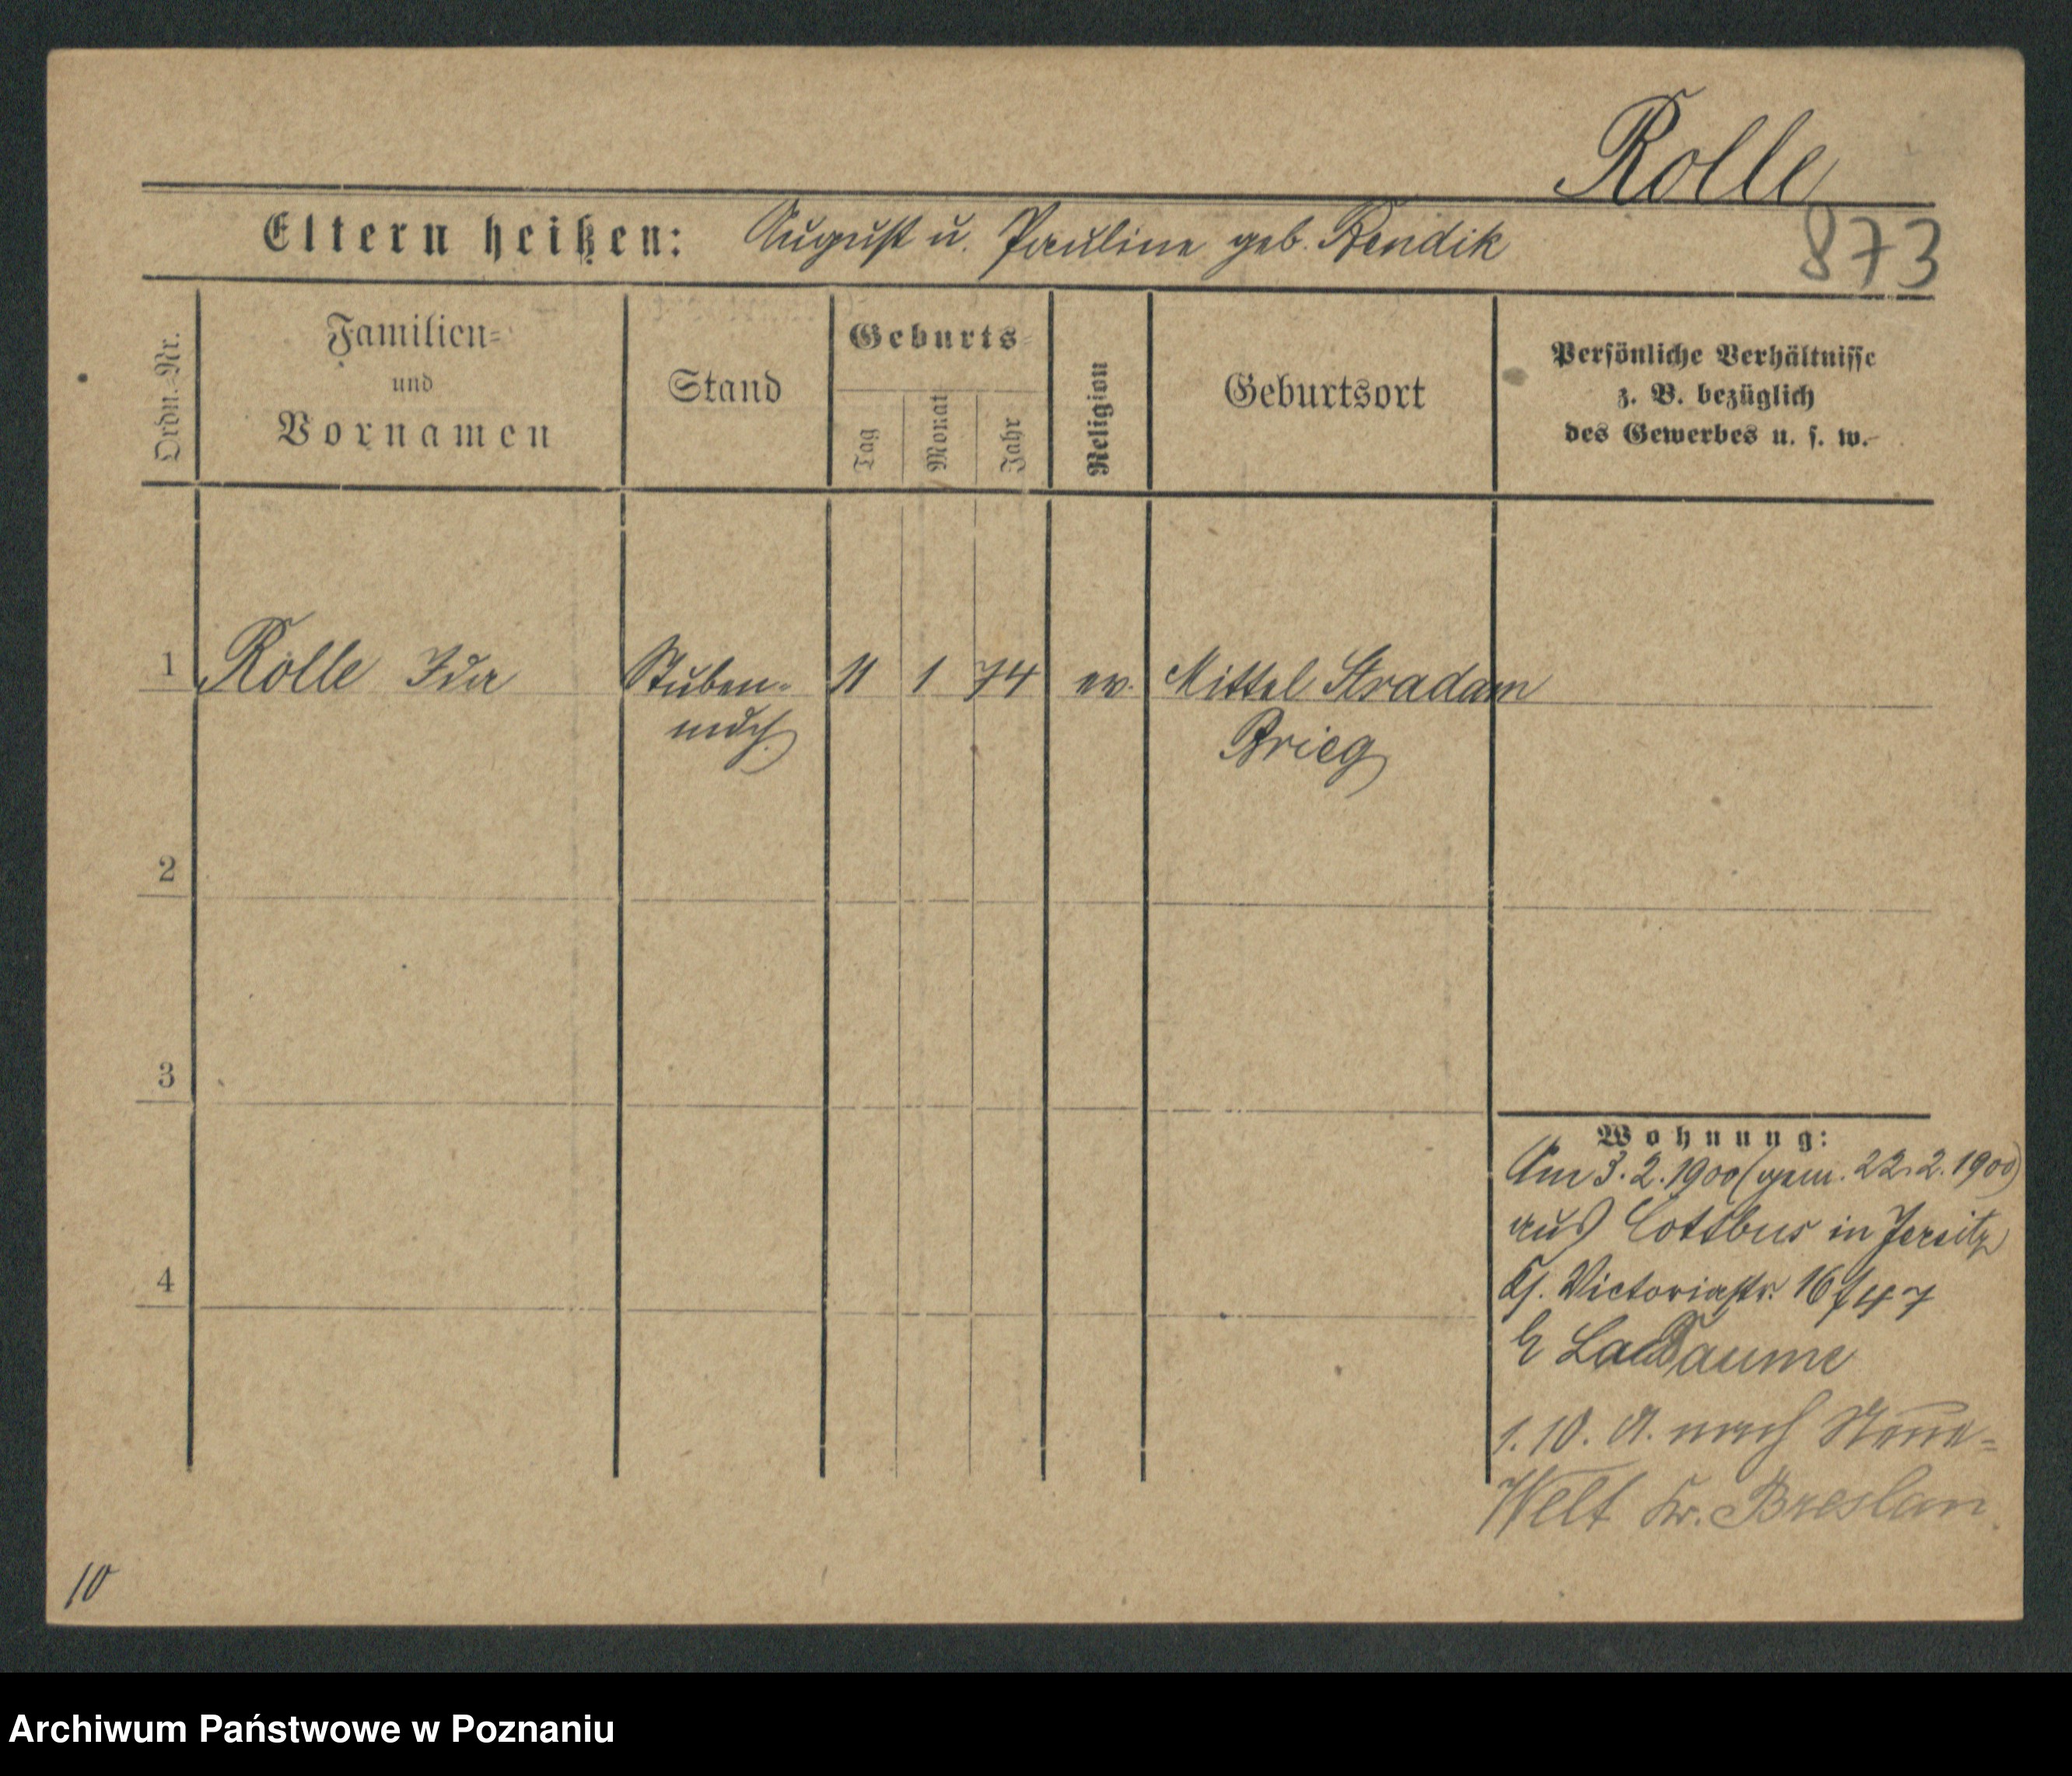 Rolle
Eltern heißen: August u. Pauline geb. Bendik
873
Ordn.-Nr.
Familien-
und
Vornamen
Stand
Geburts-
Tag
Monat
Jahr
Religion
Geburtsort
Persönliche Verhältnisse
z. B. bezüglich
des Gewerbes u. s. w.
1 Rolle Ida Stuben- 11 1 74 ev. Mittel Stradam
mdch. Brieg
2
3
4
Wohnung:
Am 3.2.1900 (gem. 22.2.1900)
aus Cottbus in Jersitz
Victoriastr. 16
1.10. nach Neue-
Welt Kr. Breslau.
10
Archiwum Państwowe w Poznaniu